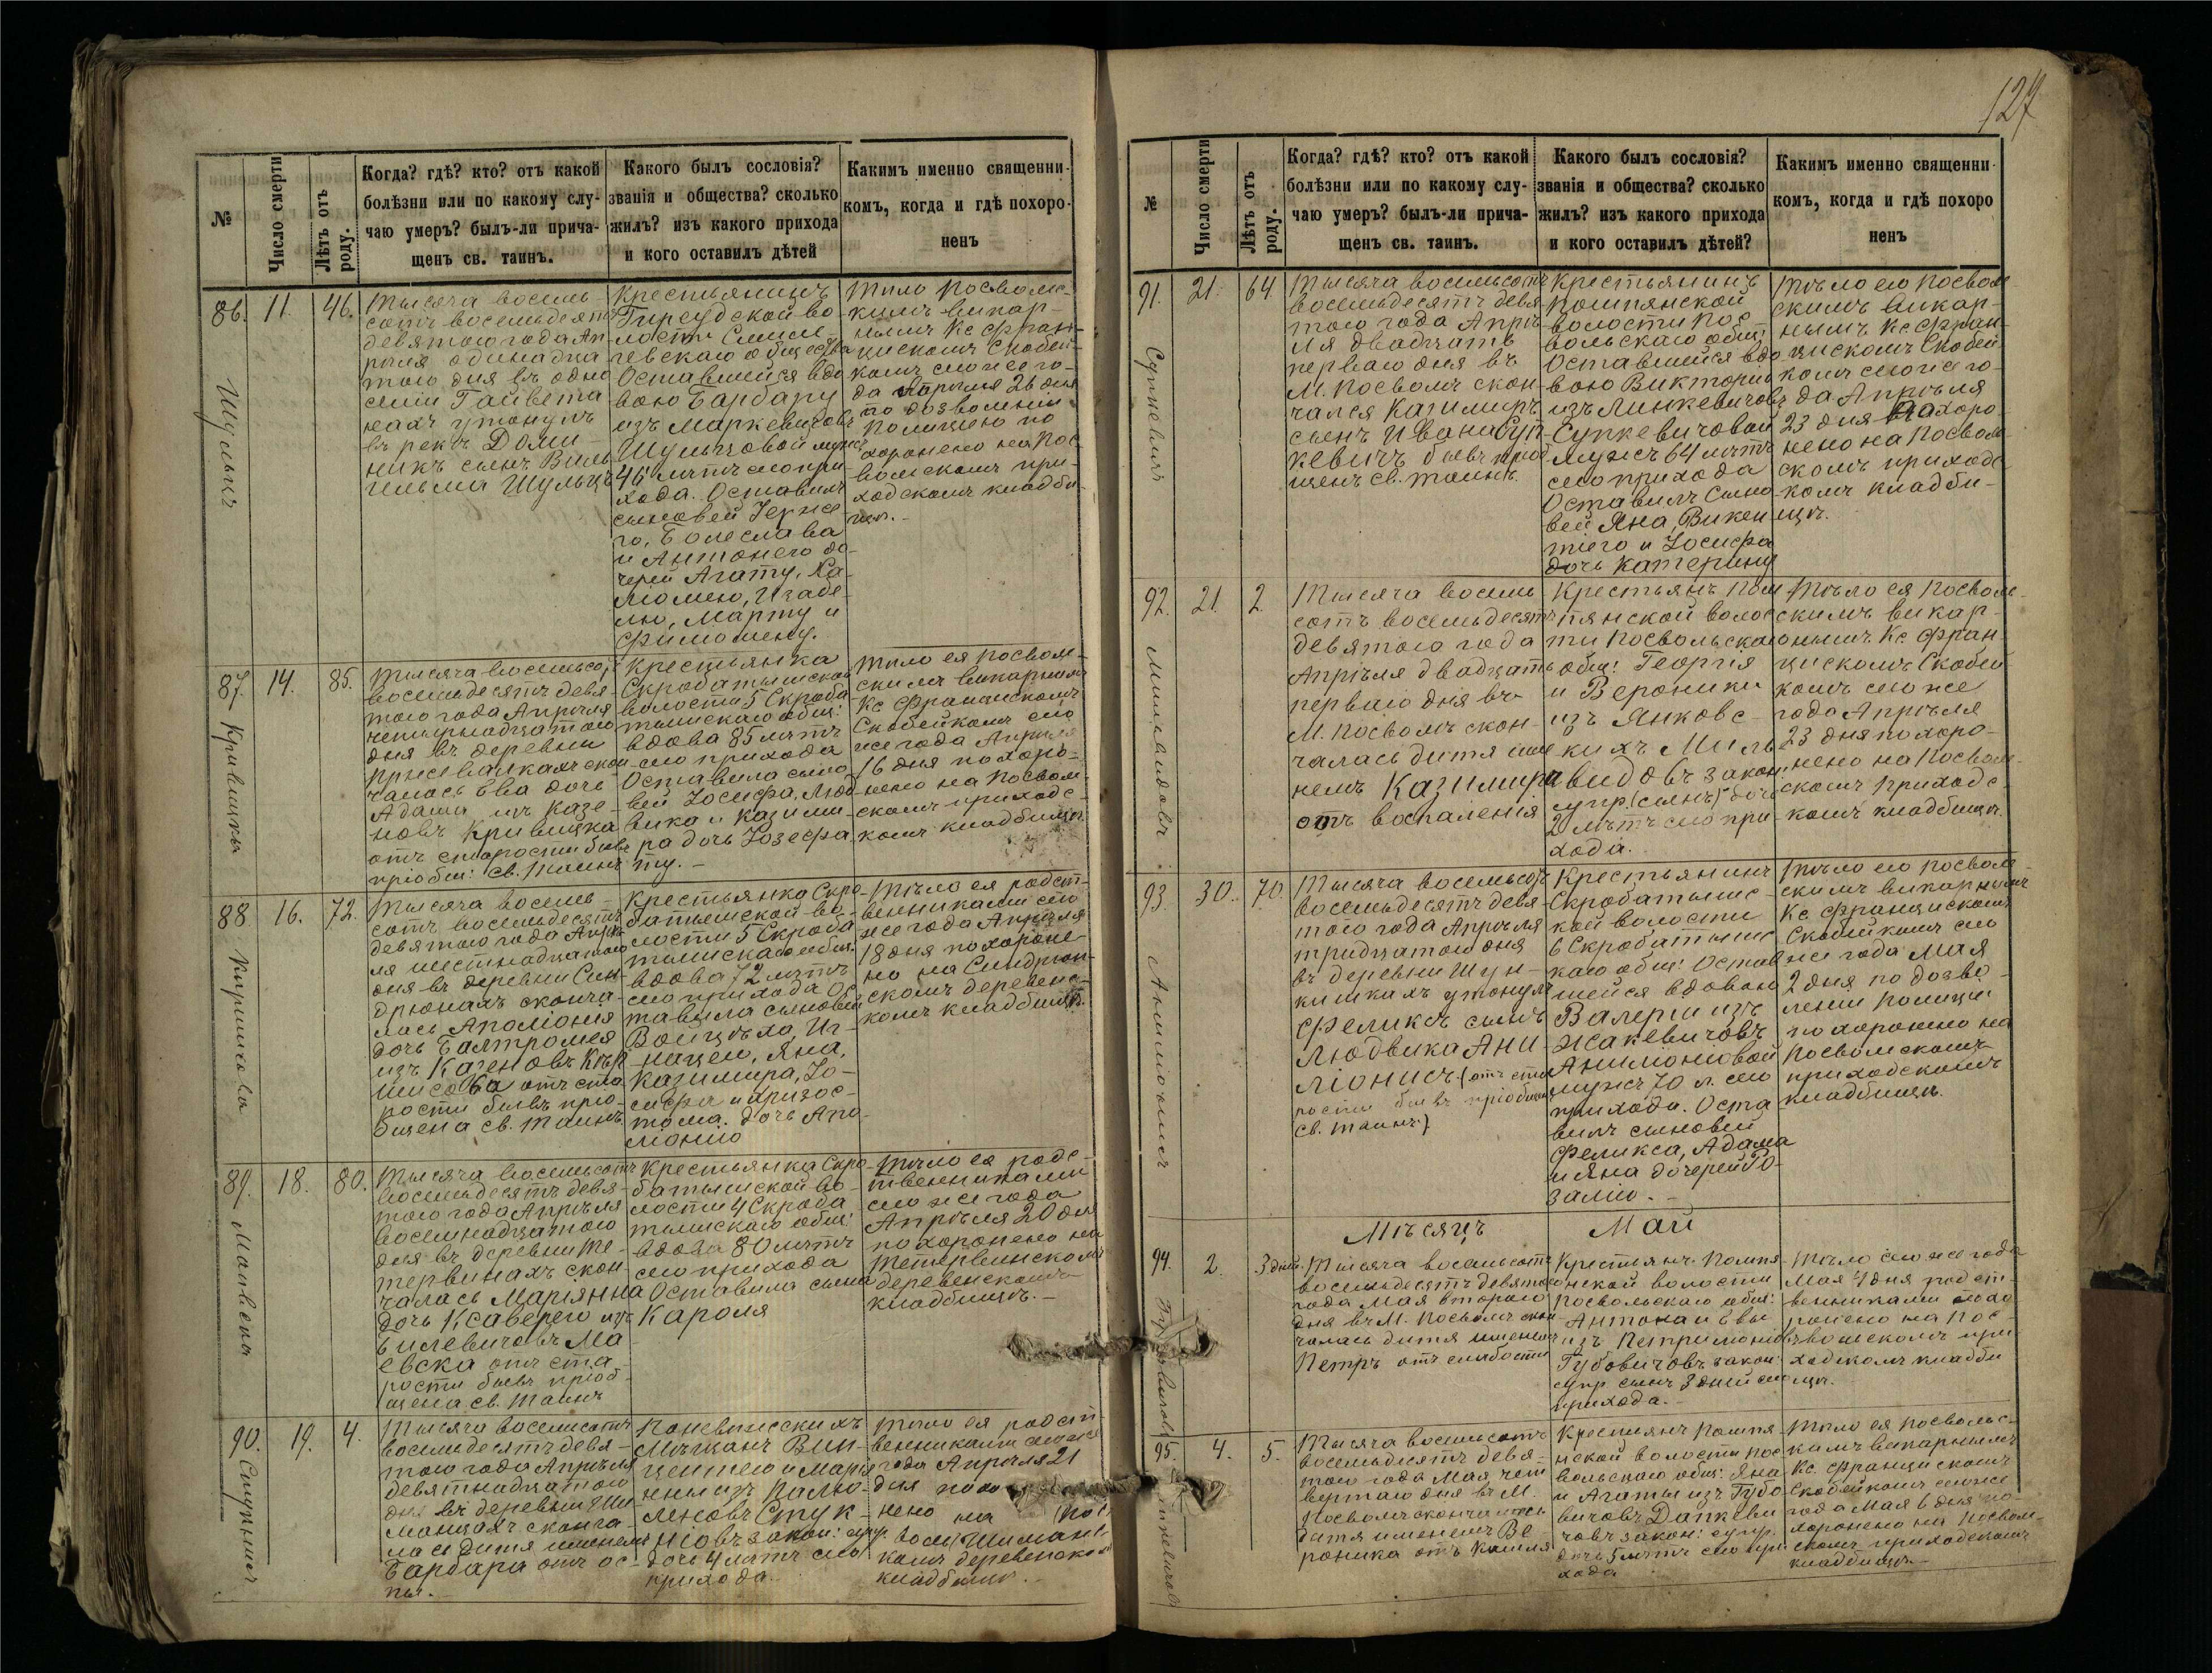 127
№
Число смерти
Лѣтъ отъ роду.
Когда? гдѣ? кто? отъ какой
болѣзни или по какому слу-
чаю умеръ? былъ-ли прича-
щенъ св. таинъ.
Какого былъ сословія?
званія и общества? сколько
жилъ? изъ какого прихода
и кого оставилъ дѣтей
Каким​ъ именно священни-
комъ, когда и гдѣ похоро-
ненъ
86. 11. 46.
Шульцъ
Тысяча восемь-
сотъ восемьдесятъ
девятого года Ап-
рѣля одинадца
того дня въ одно
селіи
неахъ утонулъ
въ рекѣ Доми-
никъ сынъ Виль
гельма Шульцъ
Крестьянинъ
волости
общества
Оставшейся вдо
вою Барбару
изъ Маркевичовъ
Шульцовой мужъ
46 лѣтъ сего при
хода. Оставилъ
сыновей
го, Болеслава
и Антонего до-
черей Агату, Са-
ломею, Изабе-
лю, Марту и
Филомену.
Тѣло Посволь-
скимъ викар-
нымъ Кс Фран-
цискомъ Скобей-
комъ сего же го-
да Апрѣля 26 дня
по дозволенію
полиціею по
хоронено на Пос
вольскомъ при-
ходскомъ кладби-
щѣ.
87. 14. 85.
Тысяча восемьсот
восемьдесятъ девя-
того года Апрѣля
четырнадцатого
дня въ деревни
скон
чалась Ева дочь
Адама изъ Казе-
новъ Кривицка
отъ старости бывъ
пріобщ: св. таинъ
Крестьянка
Скробатышской
волости 5 Скроба
тышскаго общ:
вдова 85 лѣтъ
сего прихода
Оставила сыно
вей Іосифа, Люд
вика и Казими-
ра дочь Іозефа
ту.
Тѣло ея Посволь-
скимъ викарнымъ
Кс Францискомъ
Скобейкомъ сего
же года Апрѣля
16 дня похоро-
нено на Посволь-
скомъ приходс-
комъ кладбищѣ.
88 16. 72.
Тысяча восемь-
сотъ восемьдесятъ
девятого года Апрѣ
ля шестнадцатого
дня въ деревни Син-
дрюнахъ сконча-
лась Аполіонія
дочь Балтромея
изъ Казеновъ
отъ ста
рости бывъ прі-
общена св. таинъ
Крестьянка Скро
батышской во-
лости 5 Скроба
тышскаго общ:
вдова 72 лѣтъ
сего прихода Ос
тавила сыновей
Войцѣха, Иг-
нацего, Яна,
Казимира, Іо-
сифа и Хризос-
тома. дочь Апо-
лонію
Тѣло ея родст-
венниками сего
же года Апрѣля
18 дня похороне-
но на Синдрюн-
скомъ деревенс-
комъ кладбищѣ.
89. 18. 80.
Маевска
Тысяча восемьсотъ
восемьдесятъ девя-
того года Апрѣля
восемнадцатого
дня въ деревни Те-
тервинахъ скон-
чалась Маріянна
дочь Ксаверего изъ
Билевичовъ Ма
евска отъ ста-
рости бывъ пріоб-
щена св. таинъ
Крестьянка Скро-
батышской во-
лости 4 Скроба
тышскаго общ:
вдова 80 лѣтъ
сего прихода
Оставила сына
Кароля
Тѣло ея родс-
твенниками
сего же года
Апрѣля 20 дня
похоронено на
Тетервинскомъ
деревенскомъ
кладбищѣ.
90. 19. 4.
Тысяча восемьсотъ
восемьдесятъ девя-
того года Апрѣля
девятнадцатого
дня въ деревни Ши
манцахъ сконча-
лась дитя именемъ
Барбара отъ ос-
пы.
Поневѣжскихъ
Мѣщанъ Вин-
центего и Марі
янны изъ
закон: супр.
дочь 4 лѣтъ сего
прихода.
Тѣло ея родст-
венниками сего же
года Апрѣля 21
дня
нено на
комъ деревенском
кладбищѣ.
№
Число смерти
Лѣтъ отъ роду.
Когда? гдѣ? кто? отъ какой
болѣзни или по какому слу-
чаю умеръ? былъ-ли прича-
щенъ св. таинъ.
Какого былъ сословія?
званія и общества? сколько
жилъ? изъ какого прихода
и кого оставилъ дѣтей?
Какимъ именно священни-
комъ, когда и гдѣ похоро
ненъ
91. 21. 64
Тысяча восемьсотъ
восемьдесятъ девя-
того года Апрѣ-
ля двадцать
перваго дня въ
М. Посволѣ скон-
чался Казимиръ
сынъ Ивана Суп-
кевичъ бывъ прио
щенъ св. таинъ.
Крестьянинъ
Помпянской
волости Пос
вольскаго общ:
Оставшейся вдо
вою Викторію
изъ Линкевичовъ
Супкевичовой
мужъ 64 лѣтъ
сего прихода
Оставилъ сыно
вей Яна, Викен
тіего и Іосифа
дочь Катерину
Тѣло его Посволь
скимъ викар-
нымъ Кс Фран-
цискомъ Скобей
комъ сего же го-
да Апрѣля
23 дня похоро-
нено на Посволь
скомъ приходс
комъ кладби-
щѣ.
92. 21. 2.
Мильвидовъ
Тысяча восемь
сотъ восемьдесятъ
девятого года
Апрѣля двадцать
перваго дня въ
М. Посволѣ скон-
чалась дитя име
немъ Казимира
отъ воспаленія
Крестьянъ Пом
пянской волос
ти Посвольскаго
общ: Георгія
и Вероники
изъ Янковс-
кихъ Миль-
видовъ закон.
супр. (сынъ) дочь
2 лѣтъ сего при
хода.
Тѣло ея Посволь-
скимъ викар-
нымъ Кс Фран-
цискомъ Скобей
комъ сего же
года Апрѣля
23 дня похоро-
нено на Посволь-
скомъ приходс-
комъ кладбищѣ.
93. 30. 70.
Тысяча восемьсотъ
восемьдесятъ девя-
того года Апрѣля
тридцатого дня
въ деревни Шун-
кишкахъ утонулъ
Феликсъ сынъ
Людвика Ани-
ліонисъ (отъ ста
рости бывъ пріобщенъ
св. таинъ)
Крестьянинъ
Скробатышс-
кой волости
6 Скробатышс
каго общ: Остав
шейся вдовою
Валерію изъ
Жакевичовъ
Аниліонiовой
мужъ 70 л. сего
прихода. Оста
вилъ сыновей
Феликса, Адама
и Яна дочерей Ро-
залію.
Тѣло его Посволь
скимъ викарнымъ
Кс Францискомъ
Скобейкомъ сего
же года Мая
2 дня по дозво-
леніи полиціи
похоронено на
Посвольскомъ
приходскомъ
кладбищѣ.
Мѣсяцъ Май
94. 2. 3 дн.
Тысяча восемьсотъ
восемьдесятъ девятого
года Мая второго
дня въ М. Посволѣ скон
чалась дитя именемъ
Петръ отъ слабости
Крестьянъ Помпя-
нской волости
Посвольскаго общ:
Антона и Евы
изъ
Губовичовъ закон:
супр сынъ 3 дней сего
прихода.
Тѣло сего же года
Мая 4 дня родст-
венниками похо
ронено на Пос-
вольскомъ при-
ходскомъ кладби
щѣ.
95. 4. 5.
Тысяча восемьсотъ
восемьдесятъ девя-
того года Мая чет
вертаго дня въ М.
Посволѣ скончалась
дитя именемъ Ве-
роника отъ кашля
Крестьянъ Помпя
нской волости Пос
вольскаго общ: Яна
и Агаты изъ Губо
вичовъ
закон: супр.
дочь 5 лѣтъ сего при
хода
Тѣло ея Посвольс-
кимъ викарнымъ
Кс. Францискомъ
Скобейкомъ сего же
года Мая 6 дня по-
хоронено на Посволь-
скомъ приходскомъ
кладбищѣ.